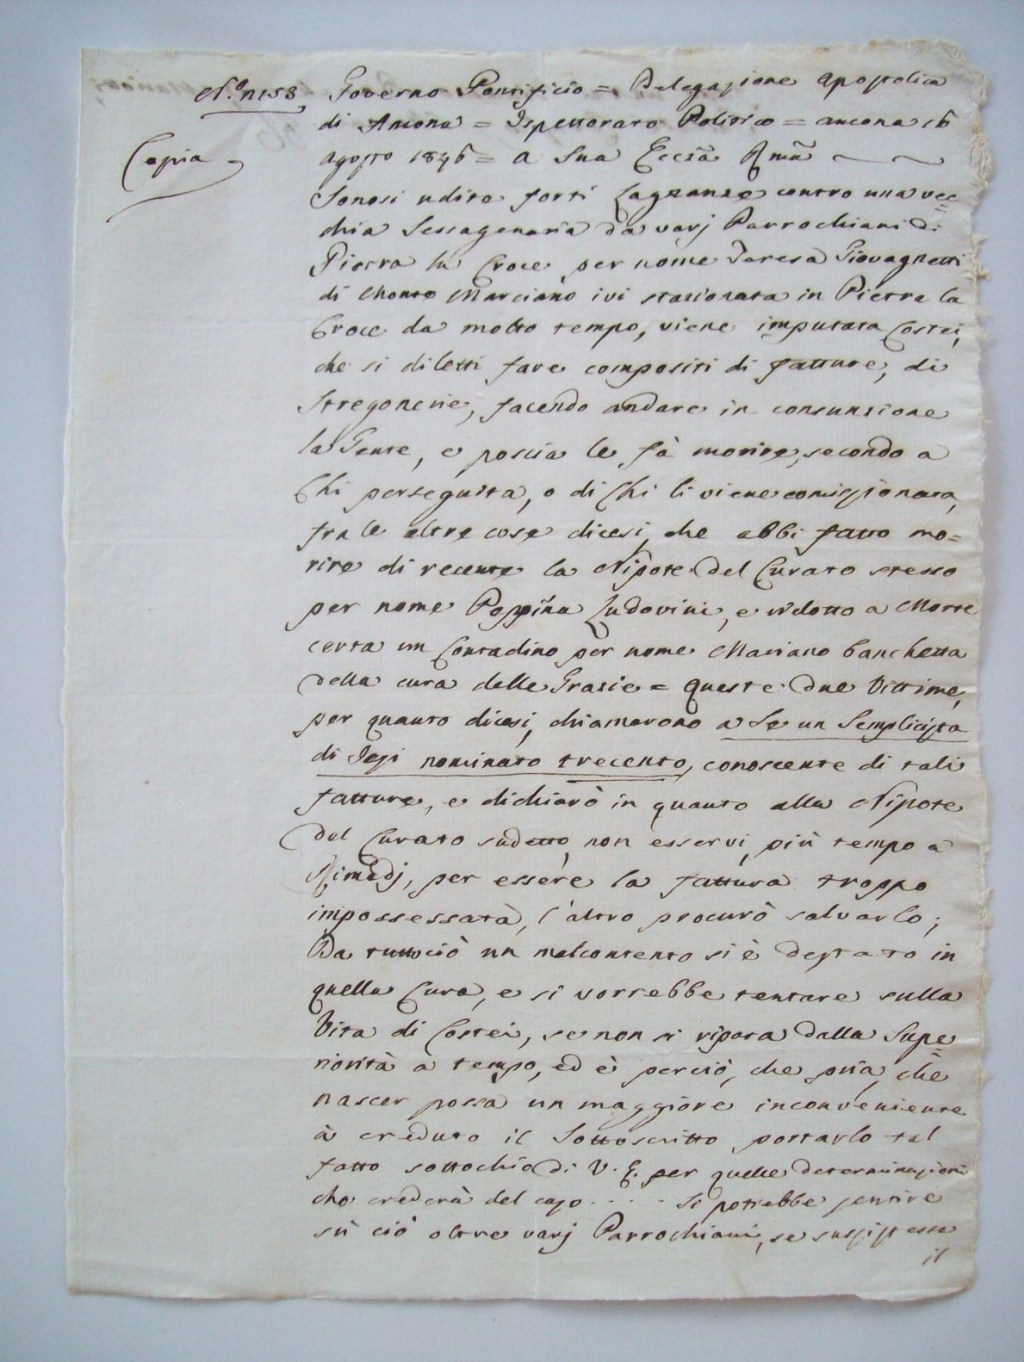 N.° 1158 Governo Pontificio = Delegazione Apostolica
di Ancona = Ispettorato Politico = Ancona 16
Copia
Agosto 1846 = A Sua Eccza Rma
Sonosi udite forti Lagnanze contro una vec=
chia Sessagenaria da varj Parrochiani di
Pietra la Croce per nome Teresa Giovagnetti
di Monte Marciano ivi stazionata in Pietra la
Croce da molto tempo, viene imputata Costei,
che si diletti fare compositi di fatture, di
Stregonerie, facendo andare in consunzione
la Gente, e poscia le fà morire, secondo a
Chi perseguita, o di Chi li viene comissionata,
fra le altre cose dicesi, che abbi fatto mo=
rire di recente la Nipote del Curato stesso
per nome Peppina Ludovini, e ridotto a Morte
certa un Contadino per nome Mariano Banchetta
della cura delle Grazie = queste due Vittime,
per quanto dicesi, chiamarono a Se un Semplicista
di Jesi nominato trecento, conoscente di tali
fatture, e dichiarò in quanto alla Nipote
del Curato sudetto, non esservi, più tempo a
Rimedj, per essere la fattura troppo
impossessata, l'altro procurò salvarlo;
Da tuttociò un malcontento si è destato in
quella Cura, e si vorrebbe tentare sulla
Vita di Costei, se non si ripara dalla Supe=
riorità a tempo, ed è perciò, che pria, che
nascer possa un maggiore inconveniente
à creduto il Sottoscritto portarlo tal
fatto sottochio di V. E. per quelle determinazioni
che crederà del caso . . . . Si potrebbe sentire
sù ciò oltre varj Parrochiani, se sussistesse
il